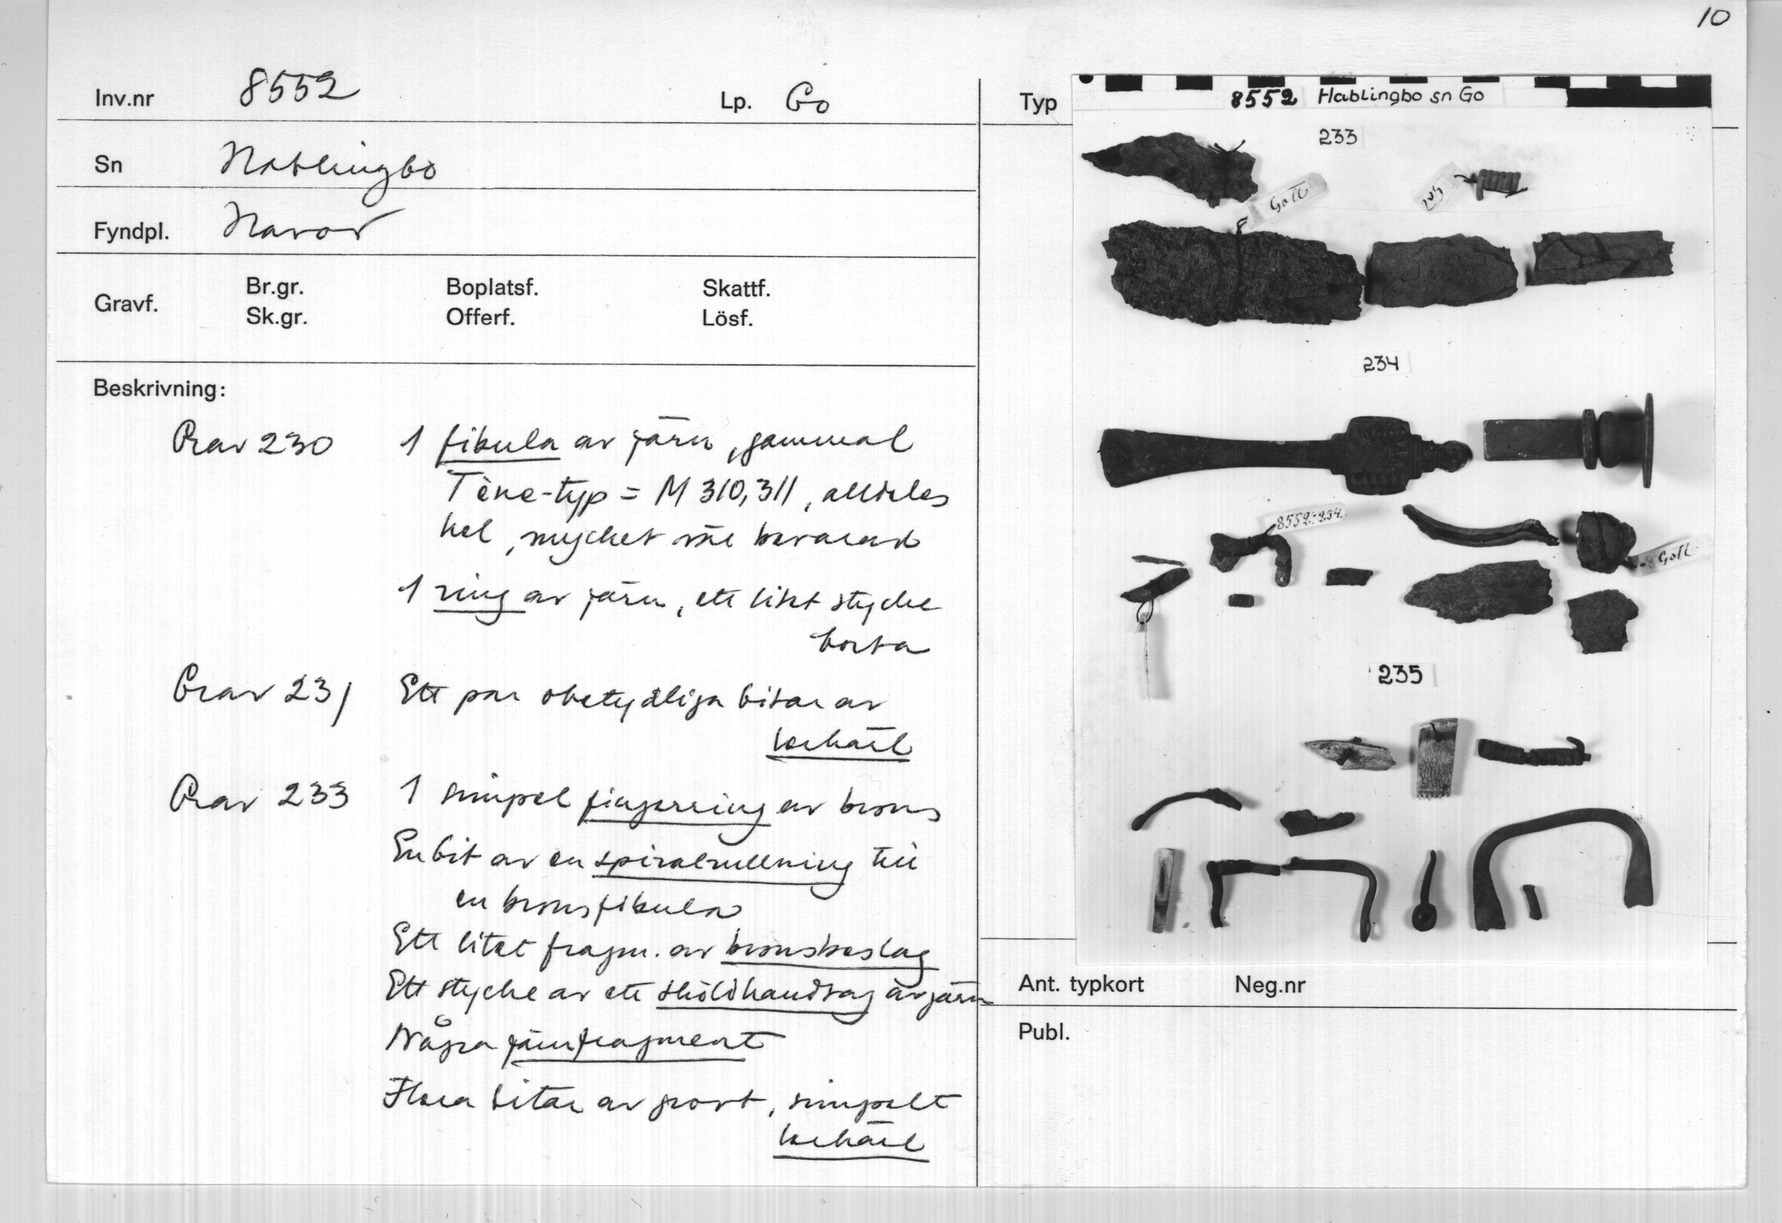 10
Inv.nr 8552 Lp. Go
Sn Hablingbo
Fyndpl. Havor
Gravf. Br.gr. Boplatsf. Skattf.
Sk.gr. Offerf. Lösf.
Beskrivning:
Grav 230 1 fibula av järn, gammal
Tène-typ = M 310, 311, alldeles
hel, mycket väl bevarad
1 ring av järn, ett litet stycke
borta
Grav 231 Ett par obetydliga bitar av
lerkärl
Grav 233 1 simpel fingerring av brons
En bit av en spiralrullning till
en bronsfibula
Ett litet fragm. av bronsbeslag
Ett stycke av ett sköldhandtag av järn
Några järnfragment
Flera bitar av grovt, simpelt
lerkärl
Typ
8552 Hablingbo sn Go
233
Gotl
234
8552:234.
Gotl.
235
Ant. typkort Neg.nr
Publ.